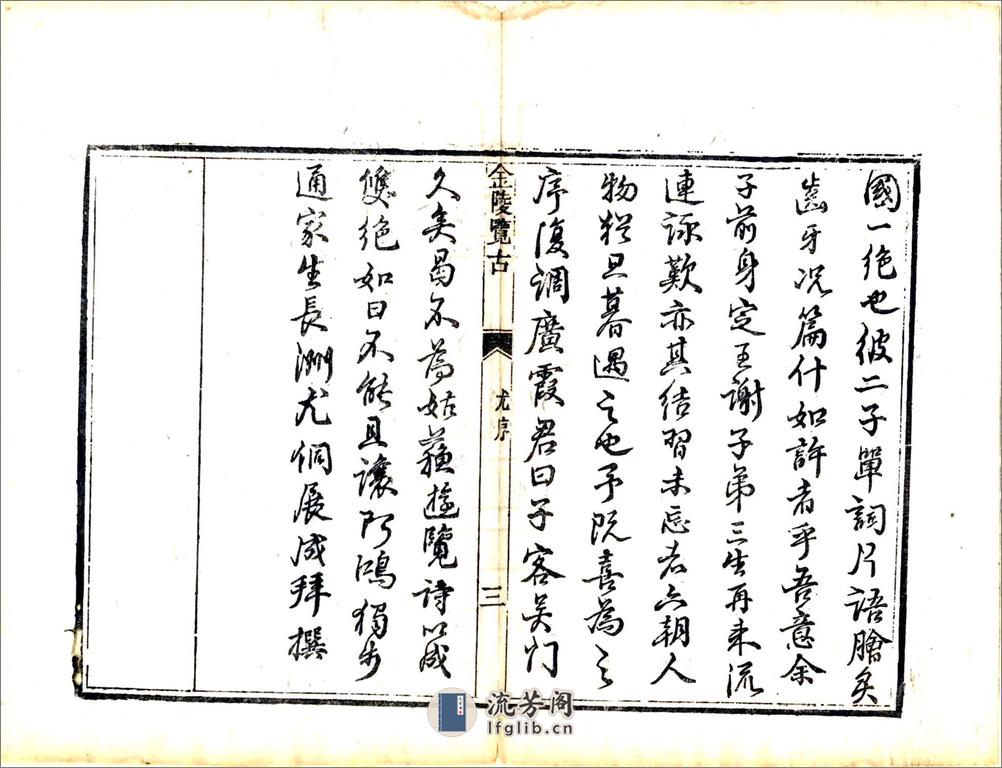 國一絶也彼二子單詞片語膾炙
齒牙况篇什如許者乎吾意余
子前身定王謝子弟三生再来流
連詠歎亦其結習未忘者六朝人
物猶旦暮遇之也予既喜為之
序復調廣霞君曰子客吴门
金陵覽古
尤序
三
久矣曷不為姑蘇遊覽詩以成
雙絶如曰不能且讓阿鴻獨步
通家生長洲尤侗展成拜撰
流芳阁
lfglib.cn